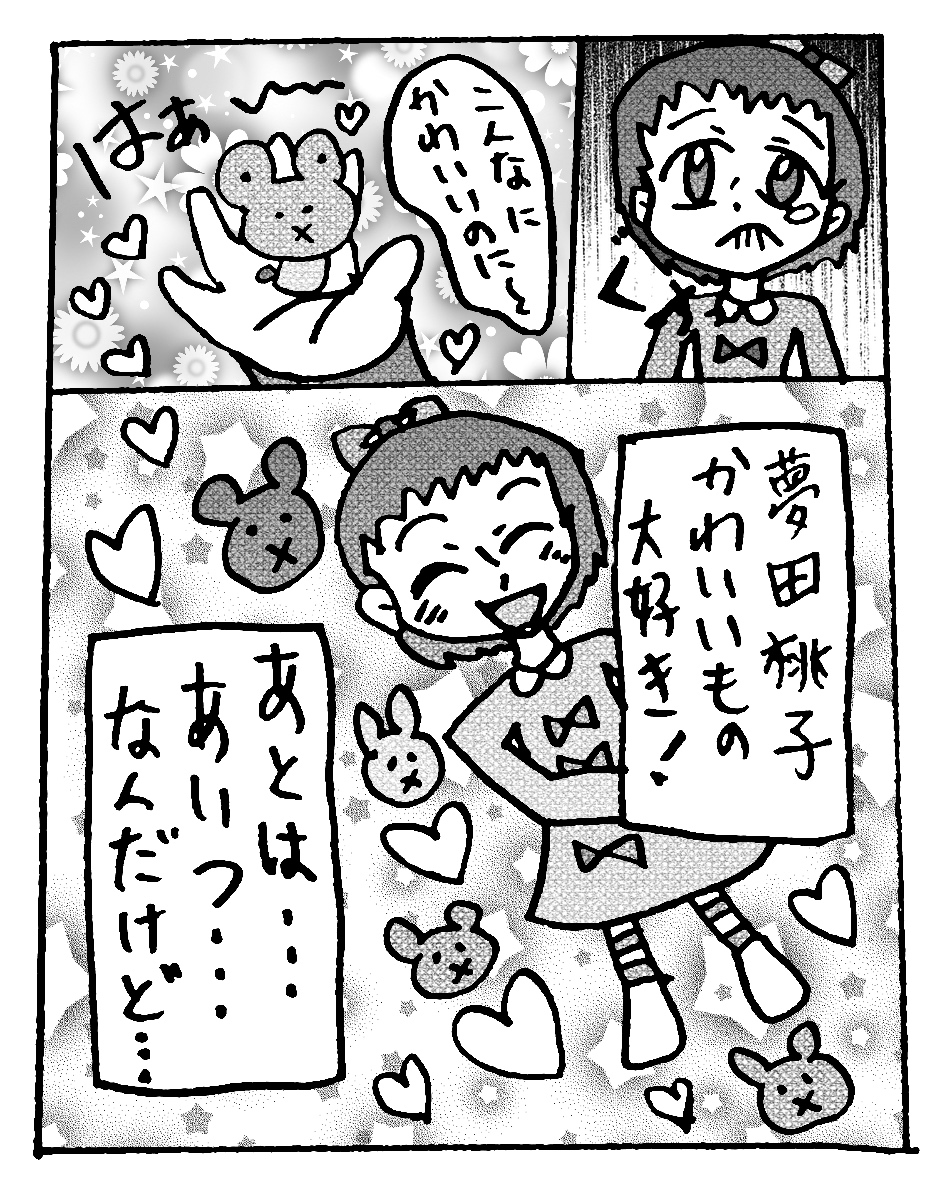 くすん
こんなに
かわいいのに〜
はぁ〜
夢田桃子
かわいいもの
大好き！
あとは・・・
あいつ・・・
なんだけど…